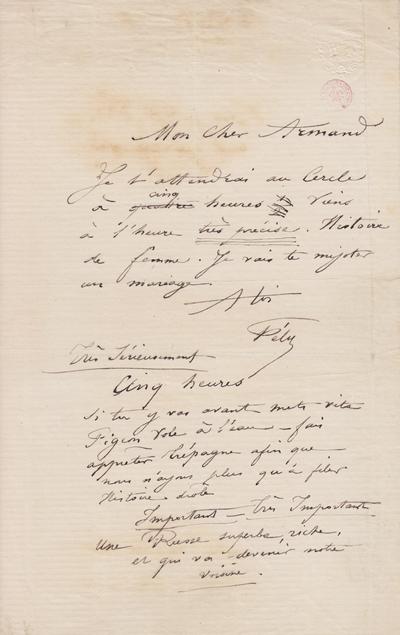 Mon Cher Armand
Je t'attendrai au Cercle
cinq
à quatre heures Viens
à l'heure très précise. Histoire
de femme. Je vais te mijoter
un mariage.
A toi
Très Sérieusement
Cinq heures
Si tu y vas avant mets vite
Pigeon vole à l'eau — fais
apprêter Crépagne afin que
nous n'ayons plus qu'à filer
Histoire drôle
Important — très Important
Une Russe superbe, riche,
et qui va devenir notre
voisine.